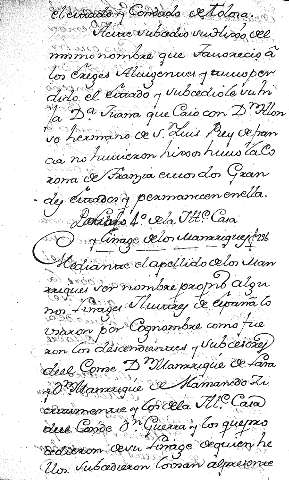 el estado y Condado de tolosa
este subcedio su hijo del
mismo nombre que favorecio â
los Ereges Alvigenses y tuvo per
dido el estado y subcediole su hi
ja Dª Juana que Caso con Dⁿ Alon
so hermano de Sⁿ Luis Rey de fran
cia no huvieron hijos huvo la Co
rona de franzia estos dos Gran
des estados y permanecen en ella.
Parrafo 4º de la Illᵉ Casa
y Linage de los Manrriques
Mediante el apellido de los Man
rriques ser nombre proprio algu
nos Linages Ilustres de españa lo
usaron por Cognombre como fue
ron los descendientes y subcesores
del Conde Dⁿ Manrrique de Lara
Dⁿ Manrrique de
y los de la Illᵉ Casa
del Conde Dⁿ Guerra y los que pro
cedieron de su Linage de quien he
llos subcedieron toman al presente